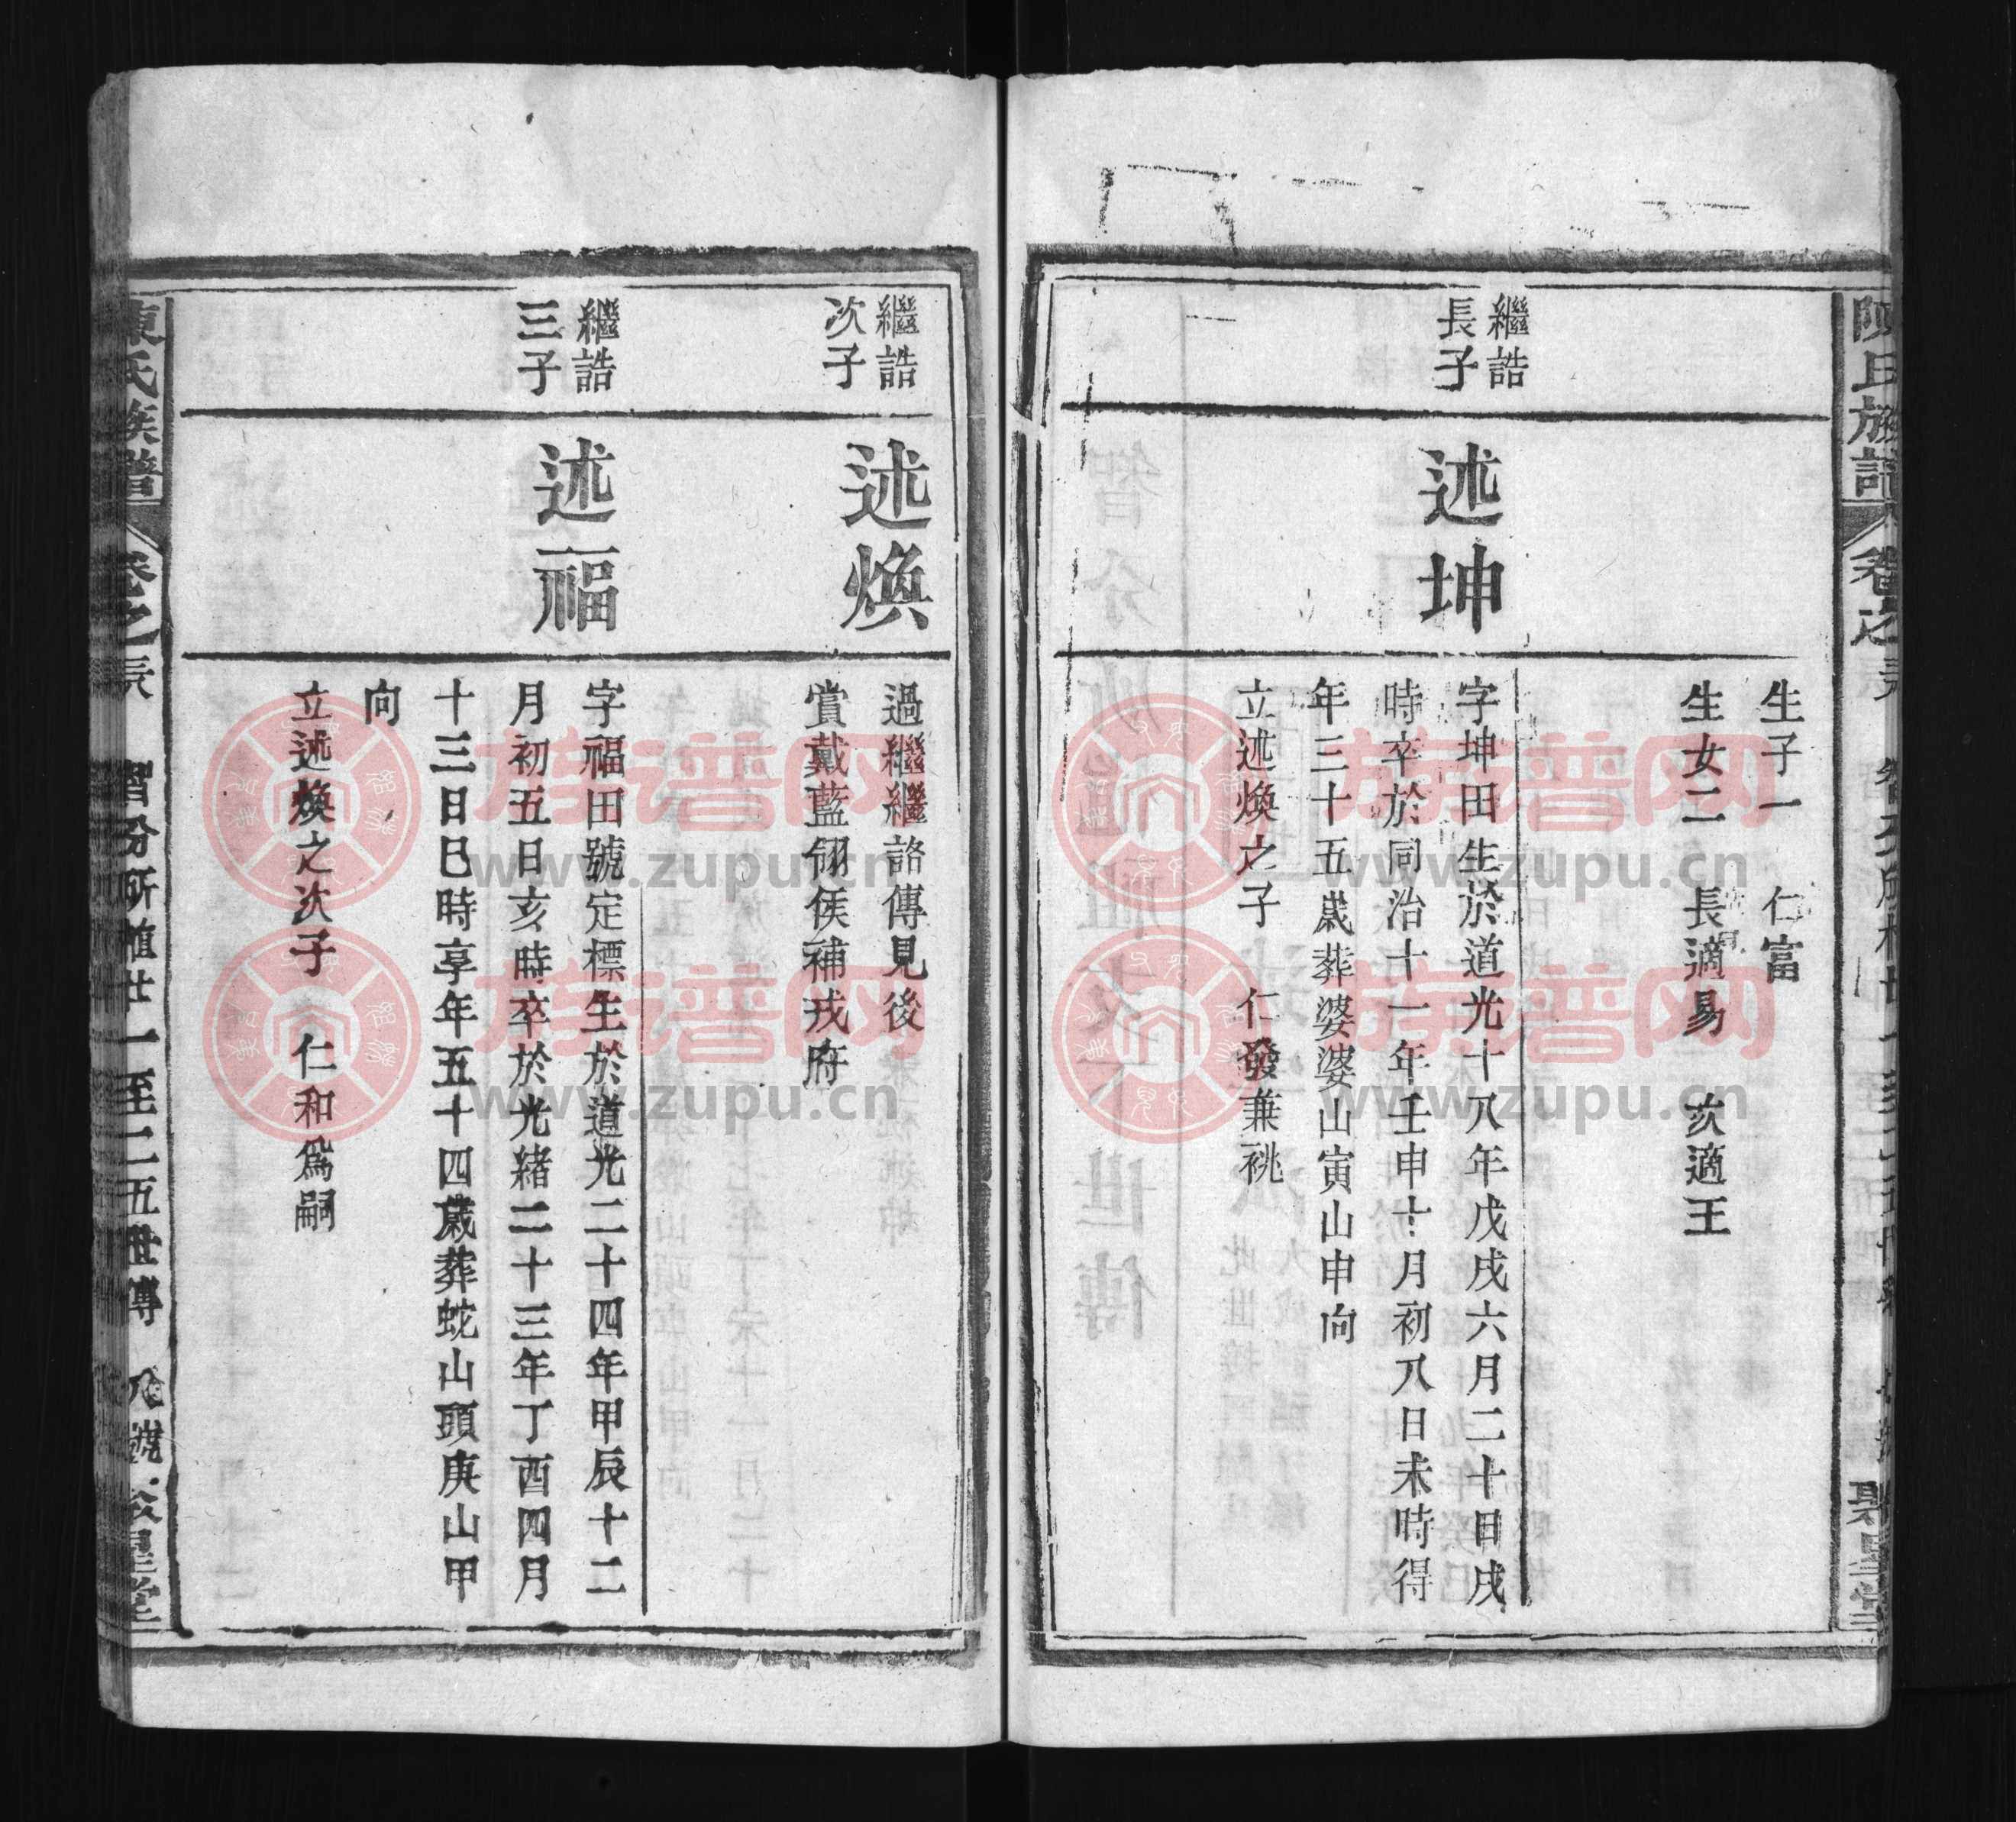 陳氏族譜
卷之
聚星堂
生子一 仁富
生女二 長適易 次適王
繼誥
長子
述坤
字坤田生於道光十八年戊戌六月二十日戌
時卒於同治十一年壬申十月初八日未時得
年三十五歲葬婆婆山寅山申向
立述煥之子 仁發兼祧
繼誥
次子
述煥
過繼繼諮傳見後
賞戴藍翎候補戎府
繼誥
三子
述福
字福田號定標生於道光二十四年甲辰十二
月初五日亥時卒於光緒二十三年丁酉四月
十三日巳時享年五十四歲葬蛇山頭庚山甲
向
立述煥之次子 仁和爲嗣
陳氏族譜
卷之辰
智份所植廿一至二五世傳
聚星堂
族谱网
www.zupu.cn
族谱网
www.zupu.cn
族谱网
www.zupu.cn
族谱网
www.zupu.cn